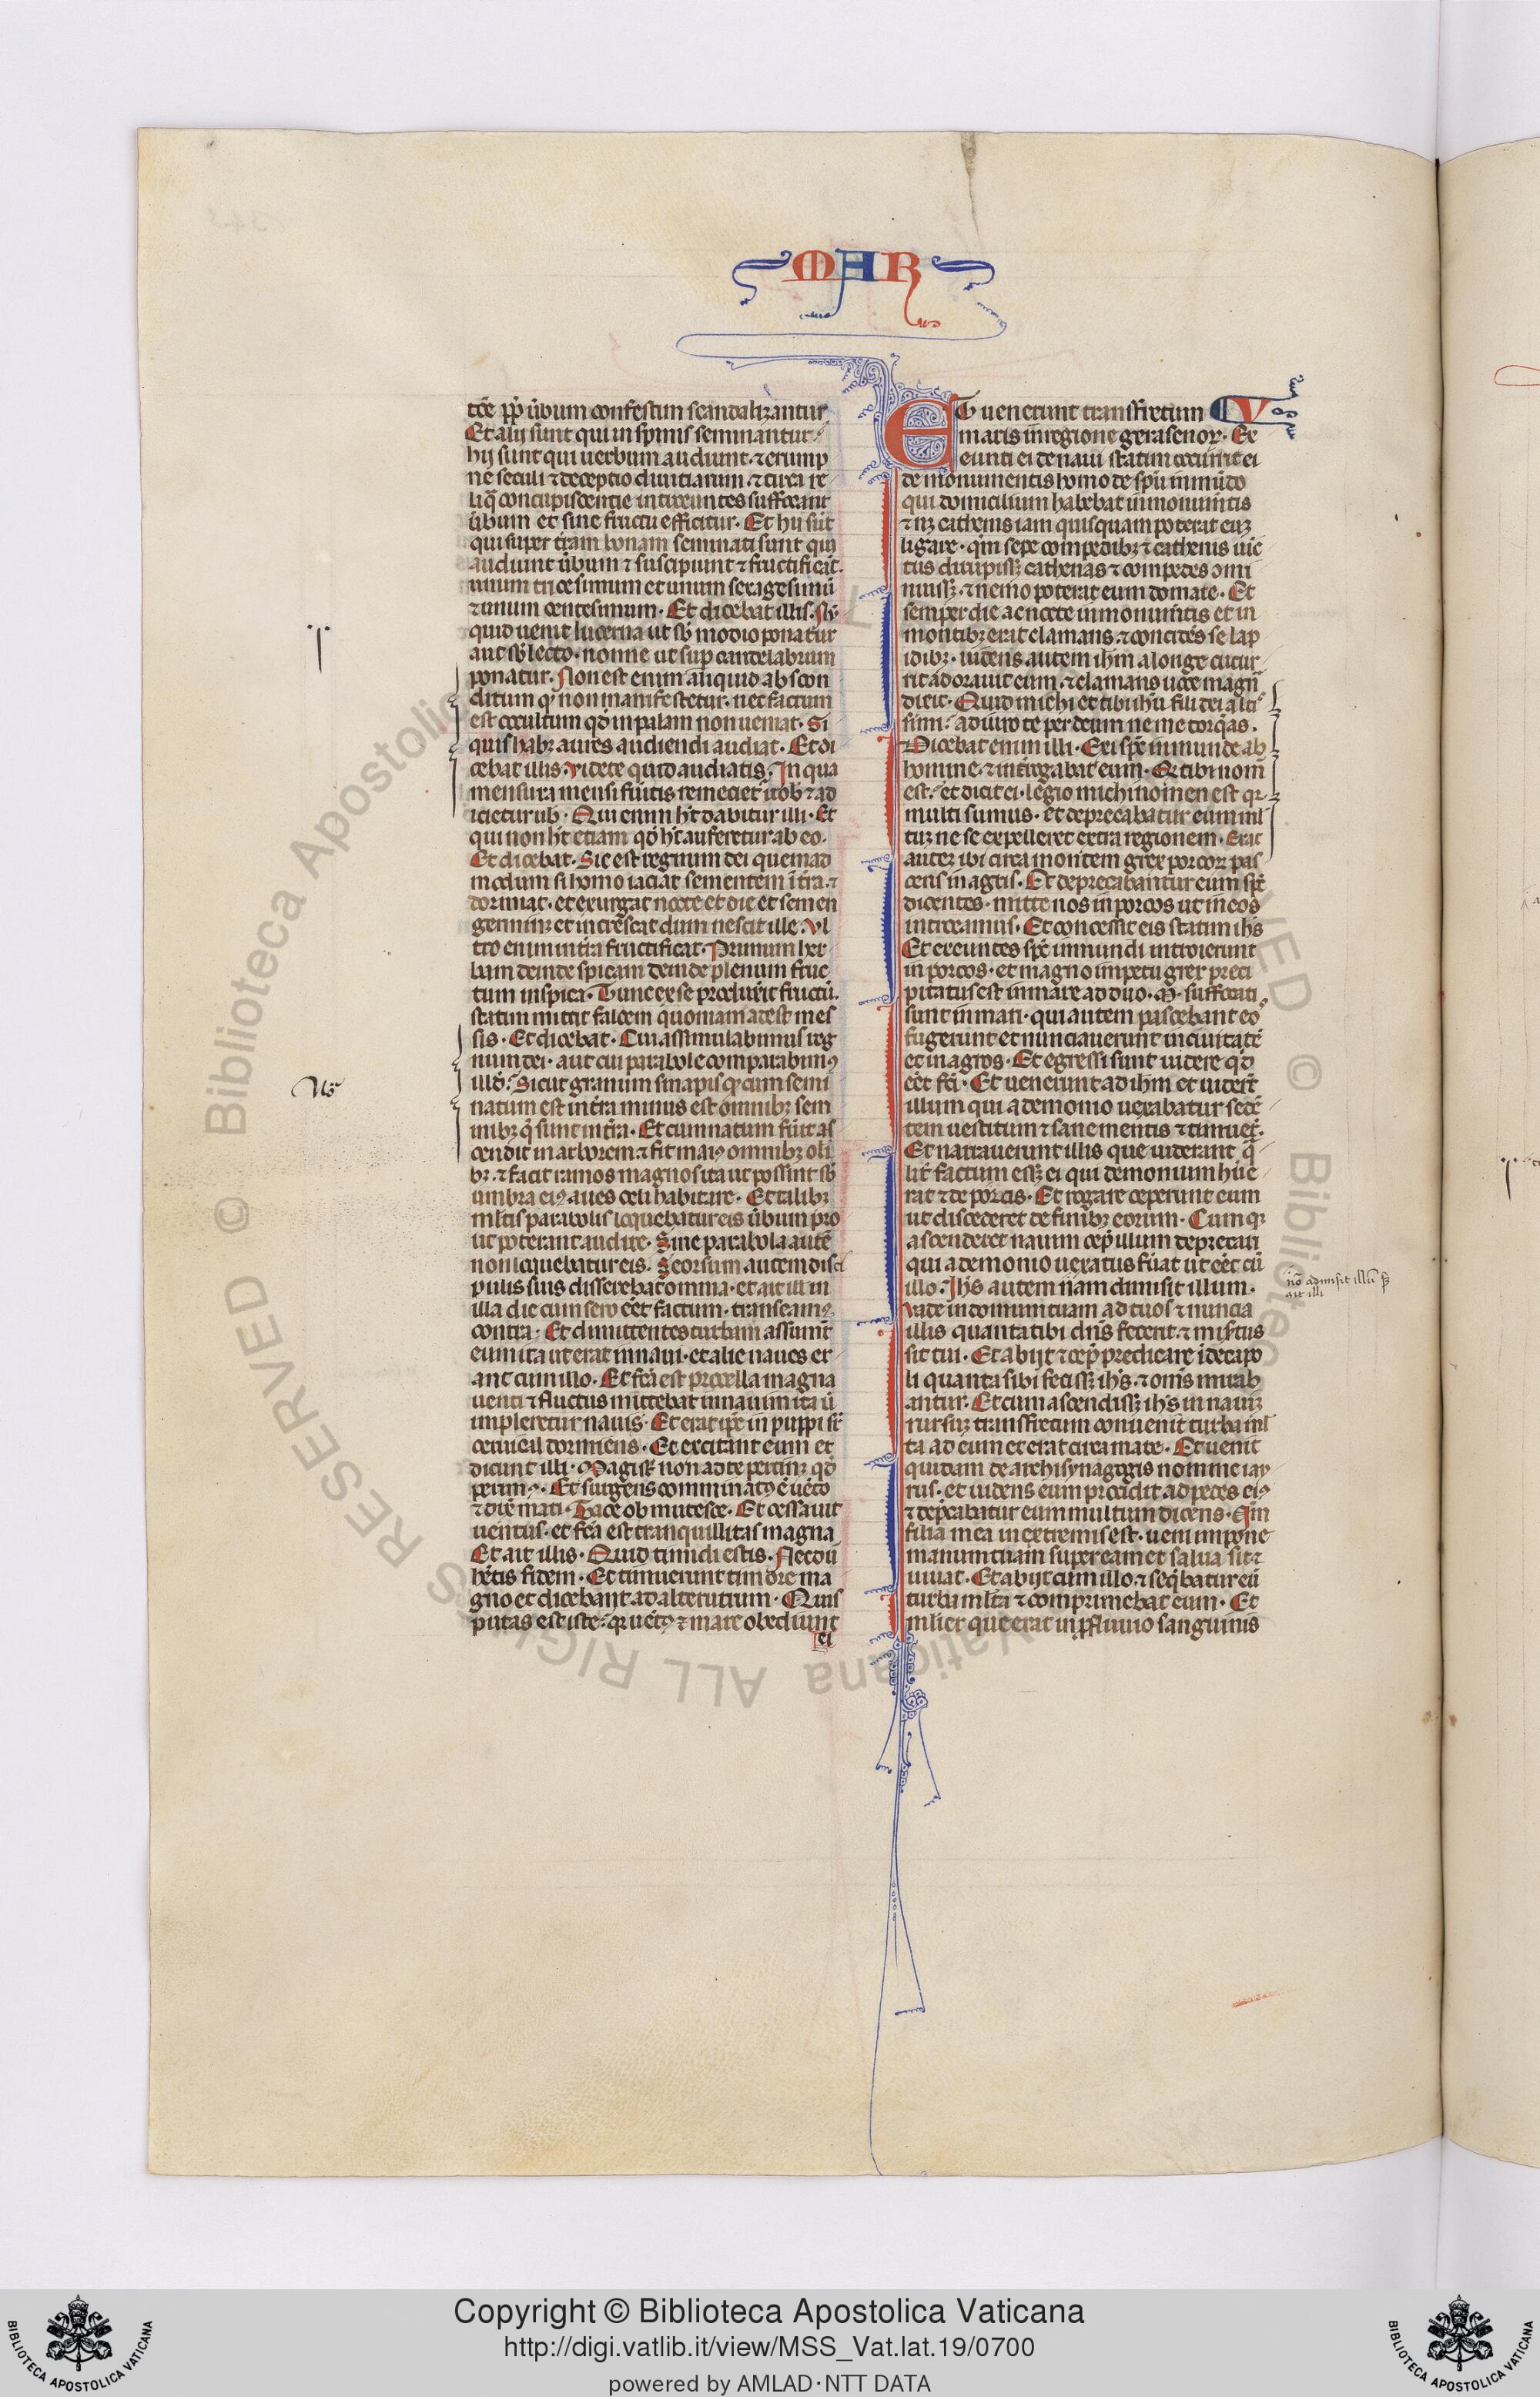 MAR
tōe pp̄ ūbum confestim scandalizantur
Et alij sunt qui in spinis seminantur
hij sunt qui uerbum audiunt ⁊ erump
ne seculi ⁊ deceptio diuitiarum ⁊ circa re
liq̄ concupiscentie introeuntes suffocant
ūbum et sine fructu efficitur. Et hij sūt
qui super t̄ram bonam seminati sunt qui
audiunt ūbum ⁊ suscipiunt ⁊ fructificāt.
unum tricesimum et unum sexagesimū
⁊ unum centesimum. Et dicebat illis. Nū
quid uenit lucerna ut sb̄ modio ponatur
aut sb̄ lecto. nonne ut sup candelabrum
ponatur. Non est enim aliquid abscon
ditum qd̄ non manifestetur. nec factum
est occultum qd̄ in palam non ueniat. Si
quis habꝫ aures audiendi audiat. Et di
cebat illis. Videte quid audiatis. In qua
mensura mensi fūitis remeciet̄ uob̄ ⁊ ad
icietur ub̄. Qui enim h̄t dabitur illi. Et
qui non h̄t etiam qd̄ h̄t auferetur ab eo.
Et dicebat. Sic est regnum dei quemad
modum si homo iaciat sementem ī t̄ra ⁊
dormiat. et exurgat nocte et die et semen
germinꝫ et increscat dum nescit ille. Vl
tro enim in t̄ra fructificat. Primum her
bam deinde spicam deinde plenum fruc
tum in spica. Tunc ex se produx̄it fructū.
statim mittit falcem quoniam adest mes
sis. Et dicebat. Cui assimulabimus reg
num dei. aut cui parabole comparabimꝰ
illd̄. Sicut granum sinapis qd̄ cum semi
natum est in t̄ra minus est omnibꝫ sem
inibꝫ q̄ sunt in t̄ra. Et cum natum fūit as
cendit in arborem ⁊ fit maiꝰ omnibꝫ oli
bꝫ. ⁊ facit ramos magnos ita ut possint sb̄
umbra eiꝰ aues celi habitare. Et talibꝫ
ml̄tis parabolis loquebatur eis ūbum pro
ut poterant audire. Sine parabola autē
non loquebatur eis. Seorsum autem disci
pulis suis disserebat omnia. et ait ill in
illa die cum sero eēt factum. transeamꝰ
contra. Et dimittentes turbam assumūt
eum ita ut erat in naui. et alie naues er
ant cum illo. Et fc̄a est procella magna
uenti ⁊ fluctus mittebat in nauim ita ū
impleretur nauis. Et erat ip̄e in puppi sr̄
ceruical dormiens. Et excitant eum et
dicunt illi. Magist̄ non ad te pertinꝫ qd̄
perimꝰ. Et surgens comminatꝰ ē uēto
⁊ dix̄ mari. Tace obmutesce. Et cessauit
uentus. et fc̄a est tranquillitas magna
Et ait illis. Quid timidi estis. Nec dū
h̄etis fidem. Et timuerunt timore ma
gno et dicebant ad alterutrum. Quis
putas est iste. qr uētꝰ ⁊ mare obediunt
ei
Et uenerunt transfretum V
maris in regione gerasenoꝝ. Ex
eunti ei de naui statim occurrit ei
de monumentis homo de spū inmūdo
qui domicilium habebat in monum̄tis
⁊ nꝫ cathenis iam quisquam poterat eūꝫ
ligare. qm̄ sepe compedibꝫ ⁊ cathenis uīc
tus dirupissꝫ cathenas ⁊ compedes omī
nuissꝫ. ⁊ nemo poterat eum domare. Et
semper die ac nocte in monum̄tis et in
montibꝫ erat clamans ⁊ concidēs se lap
idibꝫ. uidens autem ihm̄ a longe cucur
rit adorauit eum. ⁊ clamans uoce magn̄
dixit. Quid michi et tibi ihū fili dei alti
ssimi. adiuro te per deum ne me torq̄as.
Dicebat enim illi. Exi spc̄ inmunde ab
homine. ⁊ int̄rogabat eum. Qd̄ tibi nom̄
est. et dicit ei. legio michi nomen est qr
multi sumus. et deprecabatur eum ml̄
tuꝫ ne se expelleret extra regionem. Erat
auteꝫ ibi circa montem grex porcoꝝ pas
cens in agris. Et deprecabantur eum spc̄
dicentes. mitte nos in porcos ut in eos
introeamus. Et concessit eis statim ihs̄
Et exeuntes spc̄ inmundi introierunt
in porcos. et magno impetu grex preci
pitatus est in mare ad duo. M̄. suffocati
sunt in mari. qui autem pascebant eoˢ
fugerunt et nunciauerunt in ciuitatē
et in agros. Et egressi sunt uidere qd̄
eēt fc̄m. Et uenerunt ad ihm̄ et uider̄t
illum qui a demonio uexabatur sedē
tem uestitum ⁊ sane mentis ⁊ timuer̄.
Et narrauerunt illis que uiderant q̄
lit̄ factum essꝫ ei qui demonium hūe
rat ⁊ de porcis. Et rogare ceperunt eum
ut discederet de finibꝫ eorum. Cumqꝫ
ascenderet nauim cep̄ illum deprecari
qui a demonio uexatus fūat ut eēt cū
illo. Ihs̄ autem n̄am dimisit illum.
nō admisit illū sꝫ
ait illi
Vade in domum tuam ad tuos ⁊ nuncia
illis quanta tibi dns̄ fecerit ⁊ mis̄tus
sit tui. Et abijt ⁊ cep̄ predicare ī decapo
li quanta sibi fecissꝫ ihs̄. ⁊ om̄s mirab
antur. Et cum ascendissꝫ ihs̄ in nauiꝫ
rursuꝫ transfretum conuenit turba ml̄
ta ad eum et erat circa mare. Et uenit
quidam de archisynagogis nomine iay
rus. et uidens eum procidit ad pedes eiꝰ
⁊ dep̄cabatur eum multum dicens. Qm̄
filia mea in extremis est. ueni impone
manum tuam super eam et salua sit ⁊
uiuat. Et abijt cum illo. ⁊ seq̄batur eū
turba ml̄ta ⁊ comprimebat eum. Et
ml̄ier que erat in pfluuio sanguinis
Copyright © Biblioteca Apostolica Vaticana
http://digi.vatlib.it/view/MSS_Vat.lat.19/0700
powered by AMLAD·NTT DATA
BIBLIOTECA APOSTOLICA VATICANA
BIBLIOTECA APOSTOLICA VATICANA